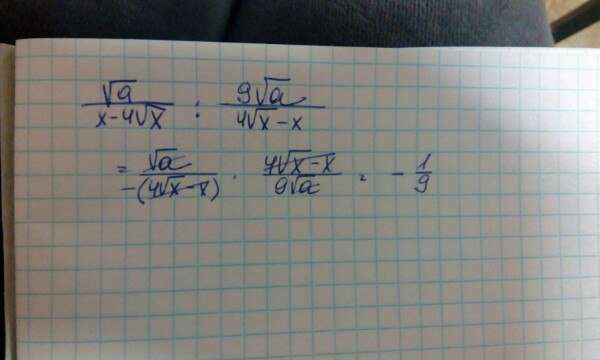 √a / (x-4√x) : 9√a / (4√x-x)
= √a / (-(4√x-x)) · (4√x-x) / (9√a) = -1/9